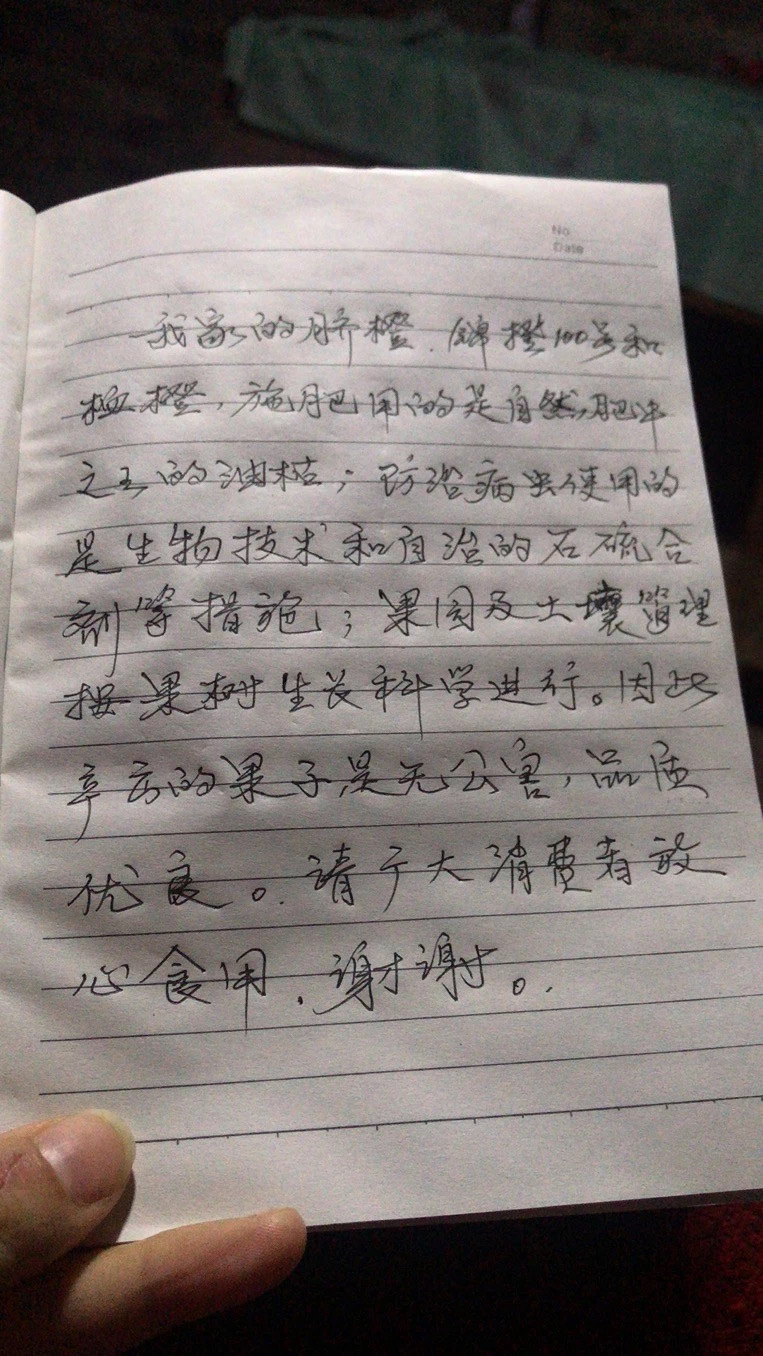 No
Date
我家的脐橙、锦橙100号和
橙,施肥用的是自然肥中
之王的油枯;防治病虫使用的
是生物技术和自治的石硫合
剂等措施;果园及土壤管理
按果树生长科学进行。因此
产的果子是无公害,品质
优良。请广大消费者放
心食用,谢谢。